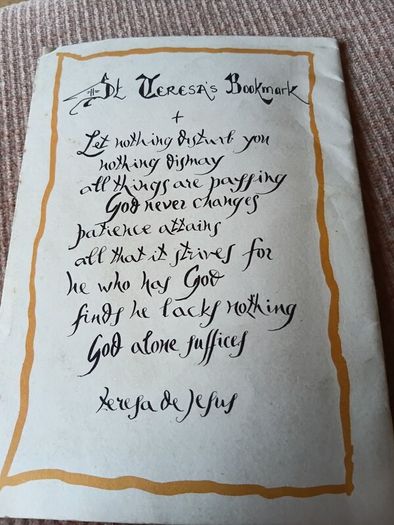 St Teresa's Bookmark
+
Let nothing disturb you
nothing dismay
all things are passing
God never changes
patience attains
all that it strives for
he who has God
finds he lacks nothing
God alone suffices
teresa de Jesus